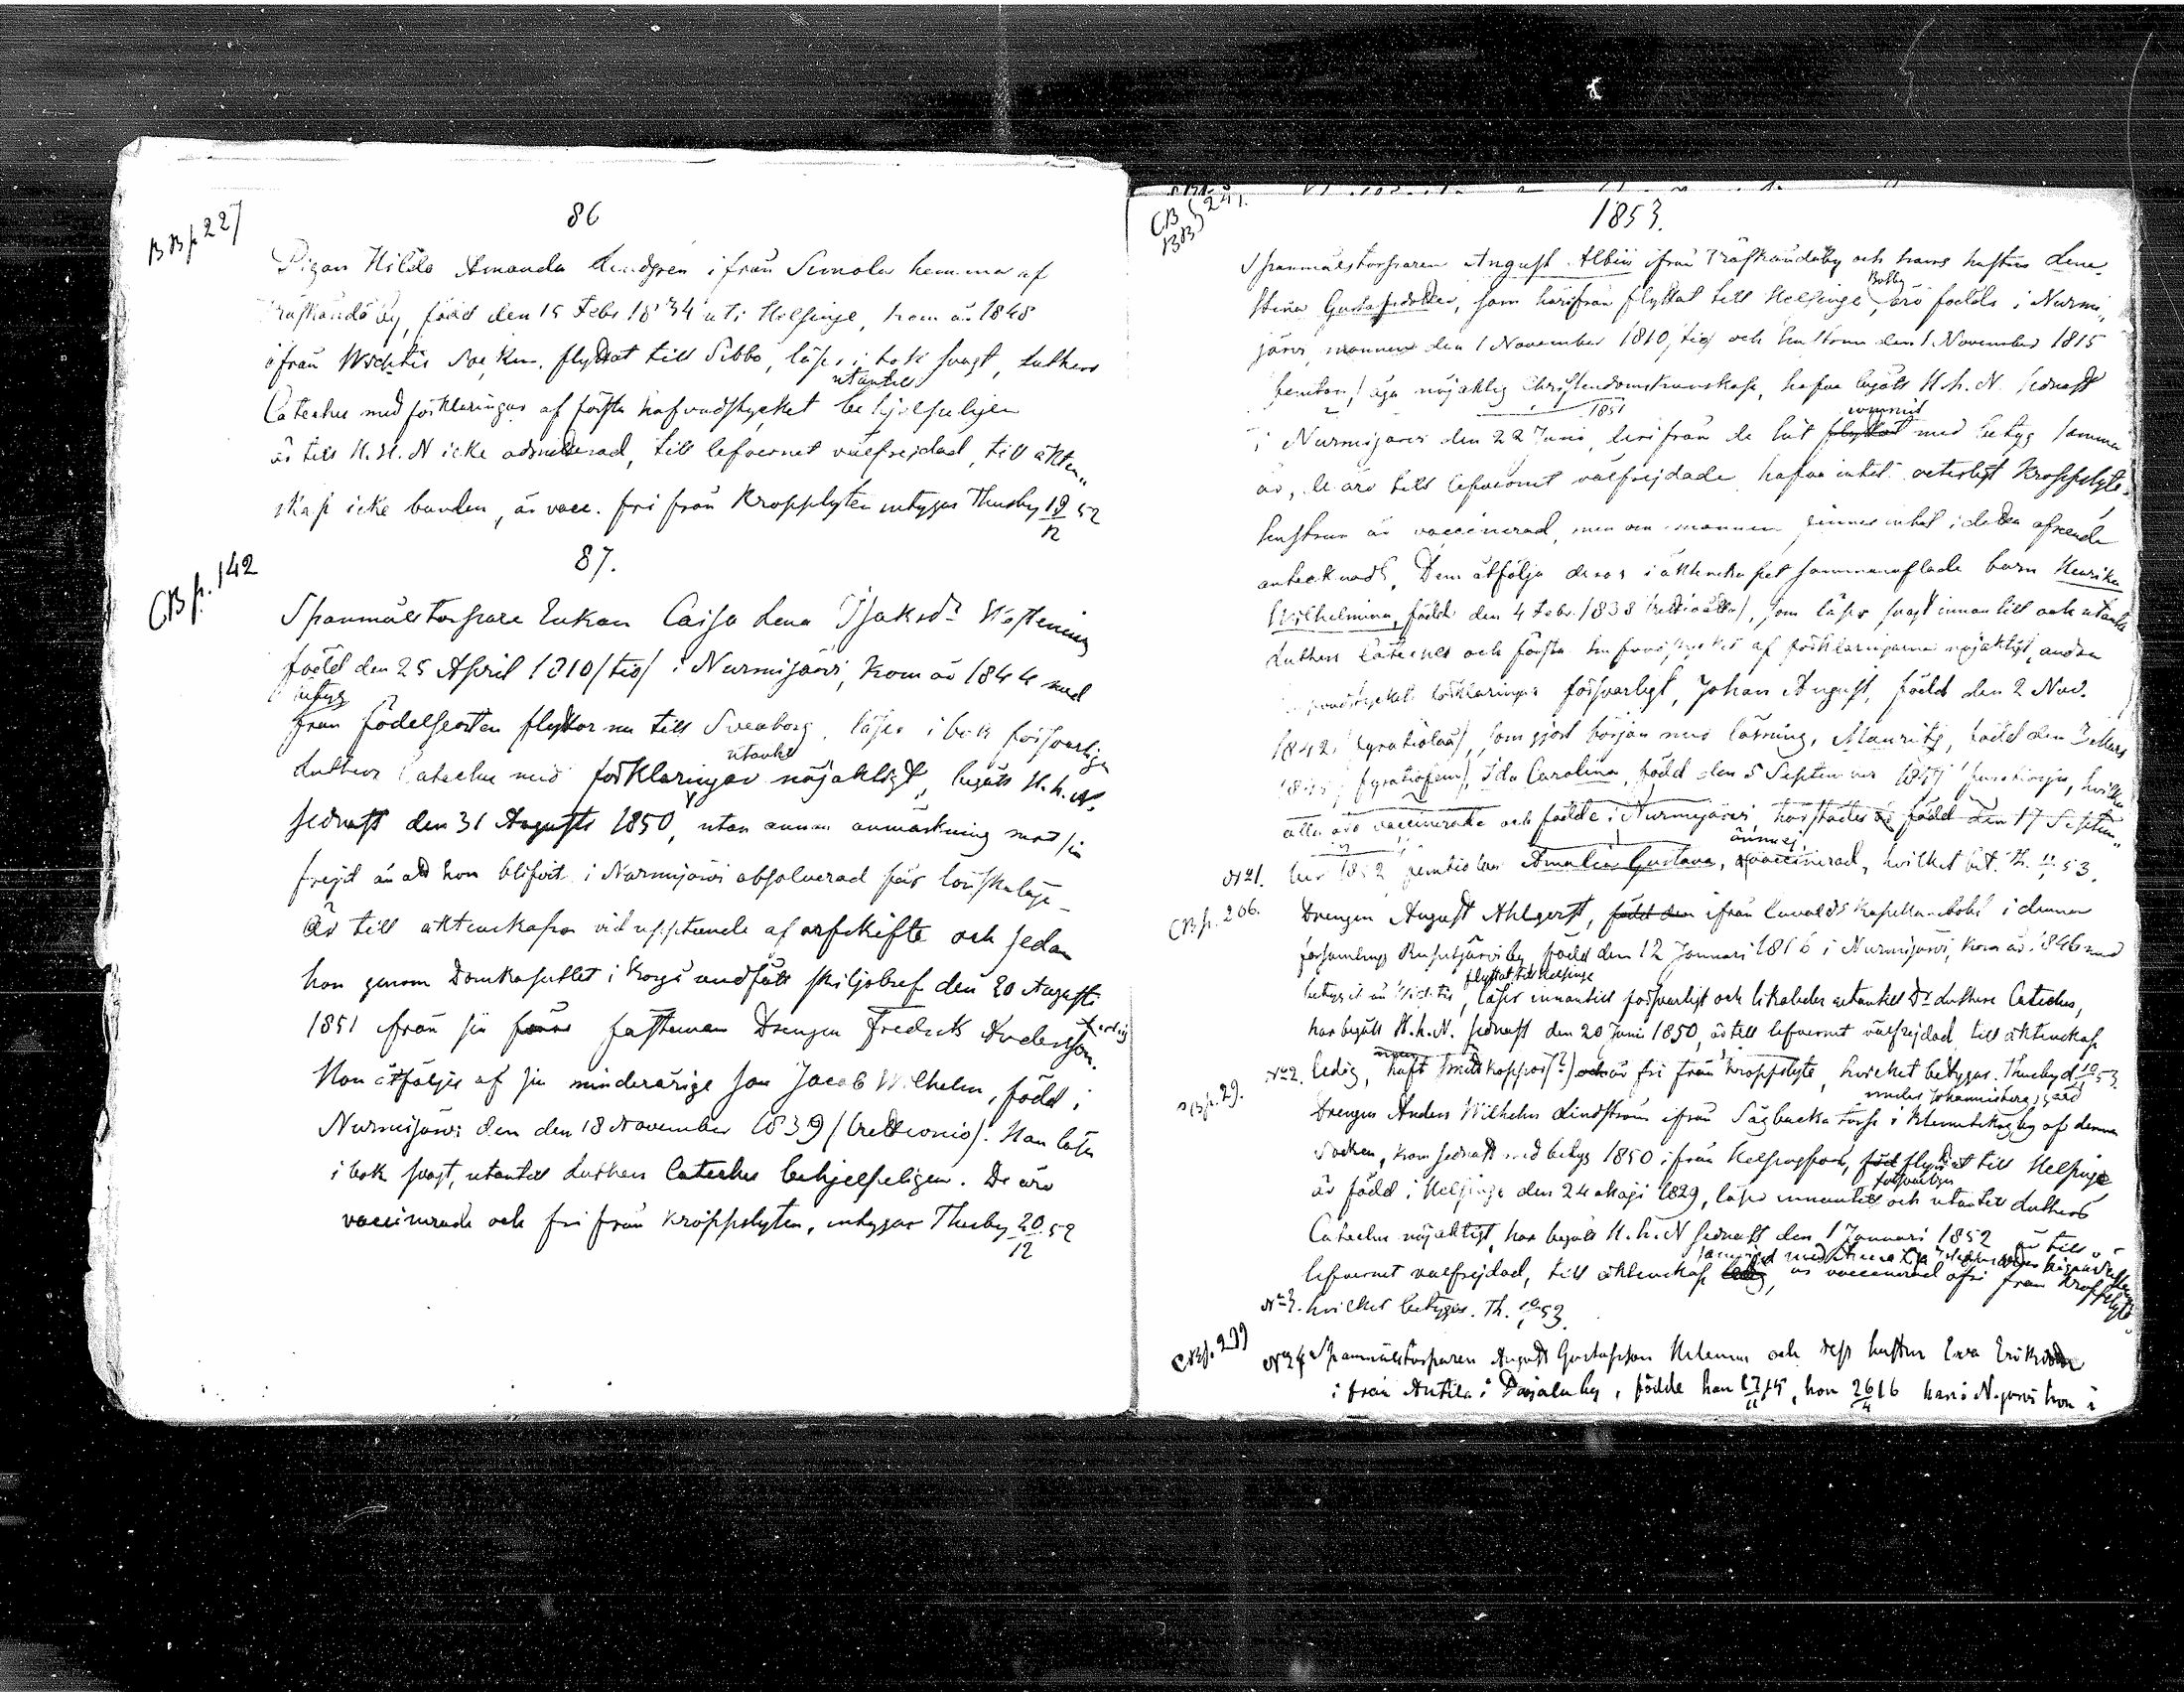 BB p 227
86
Pigan Hilda Amanda Lindgren ifrån Simola hemman af
Träskända by, född den 15 Febr 1834 uti Helsinge, kom år 1848
ifrån Wichtis Socken. flyttat till Sibbo, läser i bok svagt, Luthers
utantill
Cateches med förklaringar af första hufvudstycket behjelpeligen
är till H. H. N icke admitterad, till lefvernet välfrejdad, till äkten„
skap icke bunden, är vacc. fri från Kroppslyten intygas Thusby 19/12 52
CB p. 142
87.
Spanmålstorpare Enkan Caisa Lena Isaksdr
född den 25 April 1810 /tio/ i Nurmijärvi, kom år 1844 med
betyg
från födelseorten flyttar nu till Sveaborg. läser i bok försvarligen
utantill
Luthers Cateches med förklaringar nöjaktigt, begått H. h. N.
sednast den 31 Augusti 1850, utan annan anmärkning mot sin
frejd än att hon blifvit i Nurmijärvi absolverad för lönskaläge
Är till äktenskapen vid uppteende af arfskifte och sedan
hon genom Domkapitlet i Borgå undfått skiljobref den 20 Augusti
1851 från sin fästeman Drengen Fredrik Andersson
ledig
Hon åtföljes af sin minderårige son Jacob Wilhelm, född i
Nurmijärvi den den 18 November 1839 /trettionio/. Han läser
i bok svagt, utantill Luthers Cateches behjelpeligen. De äro
vaccinerade och fri från Kroppslyten, intygar Thusby 20/12 52
CB
BB } 241.
1853.
Spanmålstorparen August Albin ifrån Träskända by och hans hustru Lena
Boby
Stina Gustafsdotter, som härifrån flyttat till Helsinge, äro födde i Nurmi„
järvi, mannen den 1 November 1810, tio och hustrun den 1 November 1815
femton/ äga nöjaktig Christendomskunskap, hafva begått H. h. N. sednast
1851 kommit
i Nurmijärvi den 22 Juni, derifrån de hit flyttat med betyg samma
år, de äro till lefvernet välfrejdade hafva intet Kroppslyte,
hustrun är vaccinerad, men om mannen finnes intet i detta afseende
antecknadt. Dem åtfölja deras i äktenskapet sammanaflade barn Henrika
Wilhelmina, född den 4 Febr. 1838 /trettioåtta/, som läser svagt innantill och utantill
Luthers Cateches och första hufvudstycket af förklaringarna nöjaktigt, andra
hufvudstyckets förklaringar försvarligt, Johan August, född den 2 Nov.
1842 /fyratiotvå/, som gjort början med läsning, Mauritz, född den 3 Mars
1845 /fyratiofem/, Ida Carolina, född den 5 September 1847 /fyratiosju/, hvilka
alla äro vaccinerade och födde i Nurmijärvi, härstädes är född den 17 Septem„
ännu ej
N:o 1. ber 1852 femtiotvå Amalia Gustava, vaccinerad, hvilket bet. Th. 53.
CB p. 206.
Drengen August Ahlqvist, född den ifrån Capellansbohl i denna
församlings Rusutjärvi by, född den 12 Januari 1816 i Nurmijärvi, kom år 1846 med
flyttat till Helsinge
betyg ifrån Wichtis, läser innantill försvarligt och likaledes utantill Dr Luthers Cateches,
har begått H. h. N. sednast den 20 Juni 1850, är till lefvernet välfrejdad, till äktenskap
N:o 2. ledig, haft smittkoppor(?) och är fri från kroppslyte, hvilket betygas. Thusby d. 10/1 53.
BB p. 29.
under Johannisberg gård
Drengen Anders Wilhelm Lindström ifrån Sågbacka torp i Klemetskog by af denna
Socken, kom sednast med betyg 1850 ifrån Helsingfors, född flyttat till Helsinge
är född i Helsinge den 24 Maji 1829, läser innantill och utantill Luthers
försvarligen
Cateches nöjaktigt, har begått H. h. N sednast den 1 Januari 1852 är till
lefvernet välfrejdad, till äktenskap ledig, är vaccinerad o fri från Kroppslyte
N:o 3. hvilket betygas. Th. 10/1 53.
CB p. 299
N:o 4 Spanmålstorparen August Gustafsson Helenius och dess hustru Eva Eriksdotter
ifrån Antila i Paijala by, födde han 17/11 15, hon 26/4 16 han i N.järvi hon i